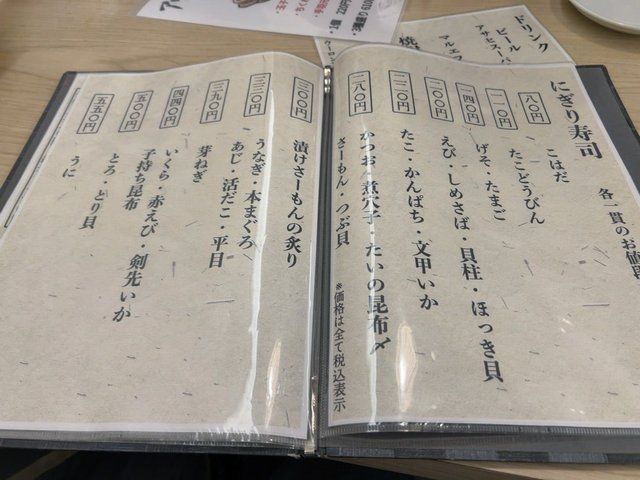 ドリンク
ビール
アサヒスーパー
マルエフ
1個 220円
3種盛り 610
にぎり寿司
各一貫のお値段
八〇円
こはだ
一一〇円
たこどうびん
一四〇円
げそ・たまご
二〇〇円
えび・しめさば・貝柱・ほっき貝
二二〇円
たこ・かんぱち・文甲いか
二八〇円
かつお・煮穴子・たいの昆布〆
さーもん・つぶ貝
※価格は全て税込表示
三〇〇円
漬けさーもんの炙り
三三〇円
うなぎ・本まぐろ
あじ・活だこ・平目
三九〇円
芽ねぎ
四四〇円
いくら・赤えび・剣先いか
子持ち昆布
五〇〇円
とろ・とり貝
五五〇円
うに